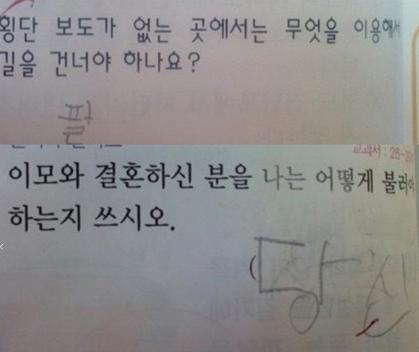 횡단 보도가 없는 곳에서는 무엇을 이용해서
길을 건너야 하나요?
팔
교과서 : 28~
이모와 결혼하신 분을 나는 어떻게 불러야
하는지 쓰시오.
(당신